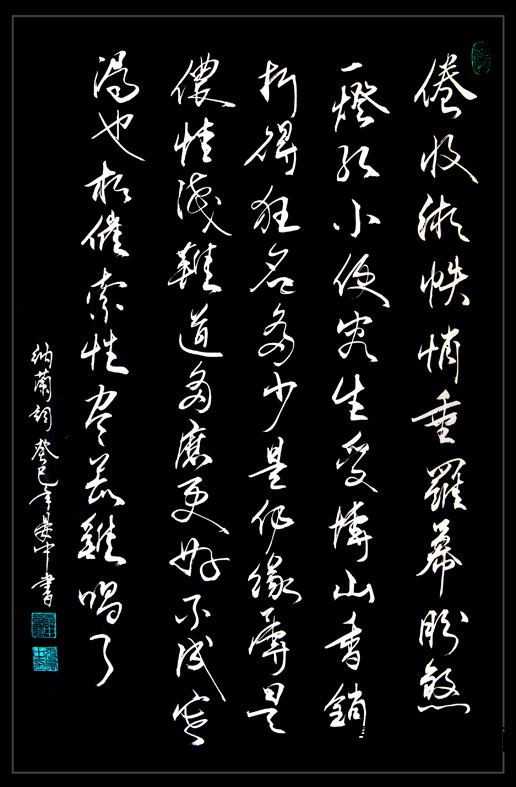 倦收緗帙悄垂羅幕盼煞
一燈紅小便容生受博山香銷
折得狂名多少是伊緣薄是
儂情淺難道多磨更好不成寒
漏也相催索性尽荒雞唱了
納蘭詞癸巳年中書